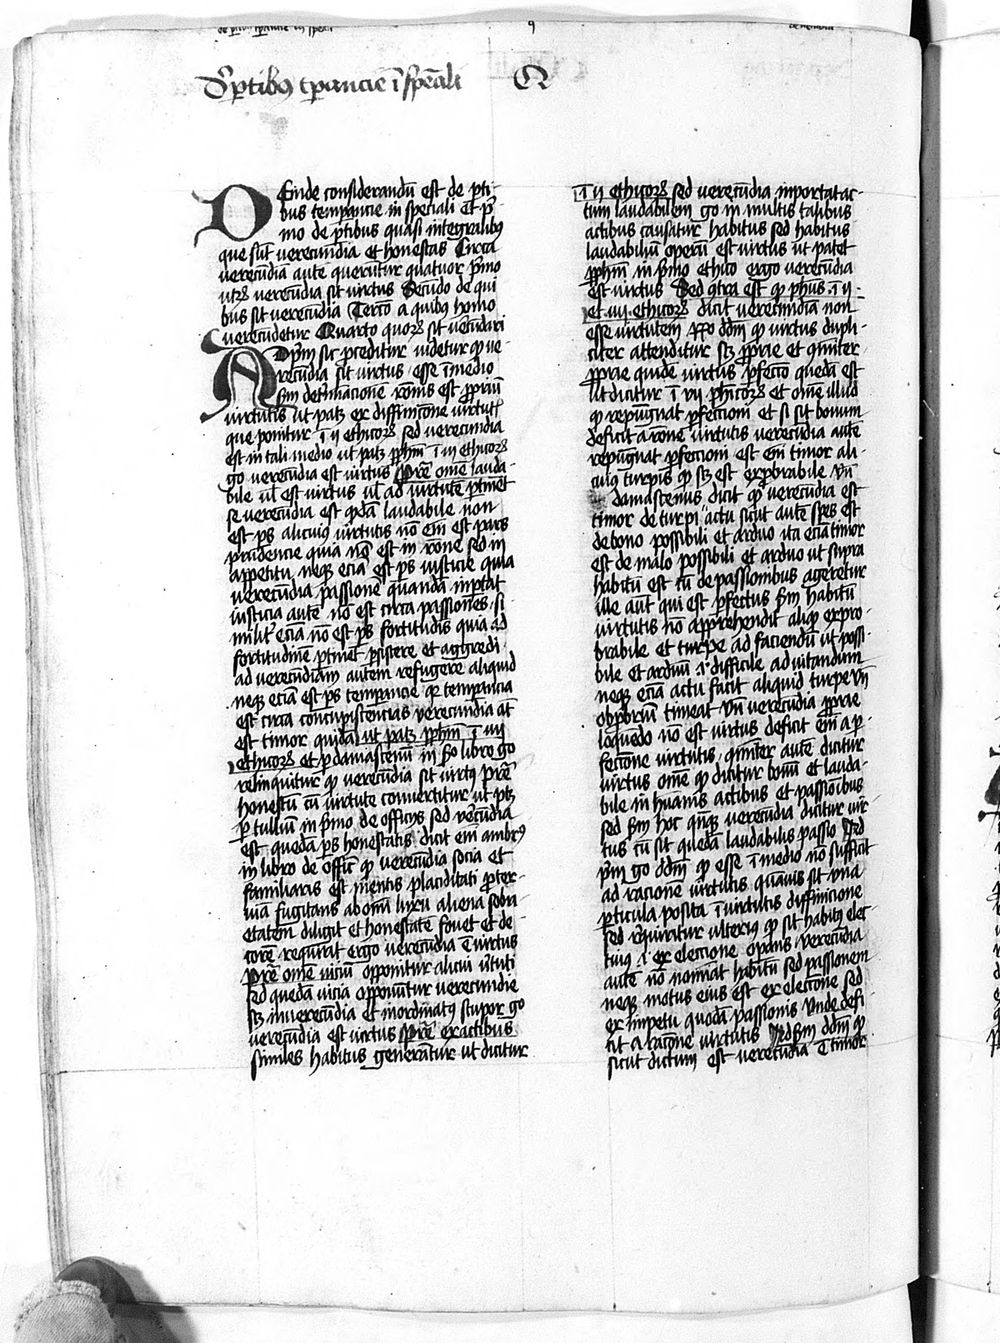 de ꝑtibus tꝑancie in speciali
9
De ꝑtibꝫ tꝑancie ī spēali Q
DEinde considerandū est de ꝑti
bus temꝑancie in speciali Et p̄
mo de ꝑtibus quasi integralibꝫ
que sūt verecundia et honestas Circa
verecūdia aūte querūtur quatuor p̄mo
utꝝ verecūdia sit virtus Secūdo de qui
bus sit verecūdia Tercō a quibꝫ homo
verecūdetur Quarto quoꝝ sit vecūdari
ADp̄m sic ꝓceditur videtur qꝫ ve
recūdia sit virtus esse ī medio
scd̄m det̄minacionē rōnis est ꝓpriū
virtutis ut patꝫ ex diffinicōne virtut̄
que ponitur ī ii ethicoꝝ sed verecūdia
est in tali medio ut patꝫ ꝑ phm̄ ī ii ethicoꝝ
go verecūdia est virtus Pret̄ om̄e lauda
bile ul̄ est virtus ul̄ ad virtutē ꝑtinet
se verecūdia est qͦdā laudabile non
est ꝑs alicuiꝫ virtutis nō em̄ est pars
prudencie quia nō est in rōne sed in
appetitu neqꝫ ecia est ꝑs iusticie quia
verecūdia passionē quandā inportat
iusticia aūte nō est circa passiones si
milit̄ ecia nō est ꝑs fortitudīs quia ad
fortitudinē ꝑtinet ꝑsistere et aggredi
ad verecūdiam autem refugere aliquid
neqꝫ ecia est ꝑs temꝑancie qꝛ temꝑancia
est circa concupiscencias verecundia āt
est timor quidā ut patꝫ ꝑ phm̄ ī iiii
ethicoꝝ et ꝑ damascenū in scd̄o libro go
relinquitur qꝫ verecūdia sit virtꝫ Pret̄
honestū cū virtute convertitur ut ptꝫ
ꝑ tulliū in p̄mo de officijs sed vecūdia
est quedā ꝑs honestatis dicit em̄ ambrꝫ
in libro de offic̄ qꝫ verecūdia socia et
familiaris est mentis placiditati ꝓter
uiā fugitans ab om̄i luxu aliena sobri
etatem diligit et honestatē fovet et de
corē requirat ergo verecūdia ē virtus
Pret̄ om̄e viciū opponitur alicui v̄tuti
sed quedā vicia opponūtur verecundie
scꝫ inverecūdia et inordinatꝫ stupor go
verecūdia est virtus Pret̄ ex actibus
similes habitus generātur ut dicitur
ī ii ethicoꝝ sed verecūdia inportat ac
tum laudabilem go in multis talibus
actibus causatur habitus sed habitus
laudabiliū operū est virtus ut patet
ꝑ phm̄ in p̄mo ethico ergo verecūdia
est virtus Sed qͣtra est qꝫ phūs ī ii
et iiii ethicoꝝ dicit verecundia non
esse virtutem Rn̄o dd̄m qꝫ virtus dupli
citer attenditur scꝫ ꝓprie et qm̄iter
ꝓprie quidē virtus ꝑfectō quedā est
ut dicitur ī vii phicoꝝ et om̄e illud
qꝫ repugnat ꝑfectioni et si sit bonum
deficit a rōne virtutis verecūdia autē
repugnat ꝑfectioni est em̄ timor ali
cuiꝫ turpis qꝫ scꝫ est exprobrabile vn̄
damascenus dicit qꝫ verecūdia est
timor de turpi actu sicut autē spes est
de bono possibili et arduo ita ecia timor
est de malo possibili et arduo ut supra
habitū est cū de passionibus ageretur
ille aūt qui est ꝑfectus scd̄m habitū
virtutis nō apprehendit aliqͩ expro
brabile et turpe ad faciendū ut possi
bile et arduū .i. difficile ad vitandum
neqꝫ ecia actu facit aliquid turpe vn̄
obprobriū timeat vn̄ verecūdia ꝓprie
loquedo nō est virtus deficit em̄ a ꝑ
fectione virtutis qm̄iter autē dicitur
virtus om̄e qꝫ dicitur bonū et lauda
bile in huānis actibus et passionibus
sed scd̄m hoc qn̄qꝫ verecūdia dicitur vir
tus cū sit quedā laudabilis passio Ad
p̄m go dd̄m qꝫ esse ī medio nō sufficit
ad racione virtutis quāvis sit vna
ꝑticula posita ī virtutis diffinicione
sed reqiritur ulterius qꝫ sit habitꝫ elec
tiuꝫ .i. ex eleccione opans verecūdia
autē nō nominat habitū sed passionem
neqꝫ motus eius est ex eleccōne sed
ex impetu quodā passionis Unde defi
cit a racōne virtutis Ad scd̄m dd̄m qꝫ
sicut dictum est verecūdia ē timor